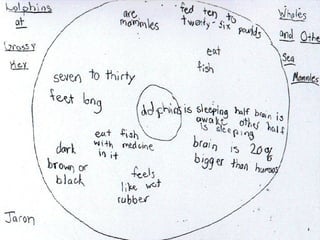 Dolphins
at
Grassy
Key
are
mammles
fed ten to
twenty-six pounds
Wholes
and Othe
Sea
Mammles
eat
fish
seven to thirty
feet long
dolphins
is sleeping half brain is
awake other half
is sleeping
eat fish
with medcine
in it
brain is 20%
bigger than humans
dark
brown or
black
feels
like wet
rubber
Jaron